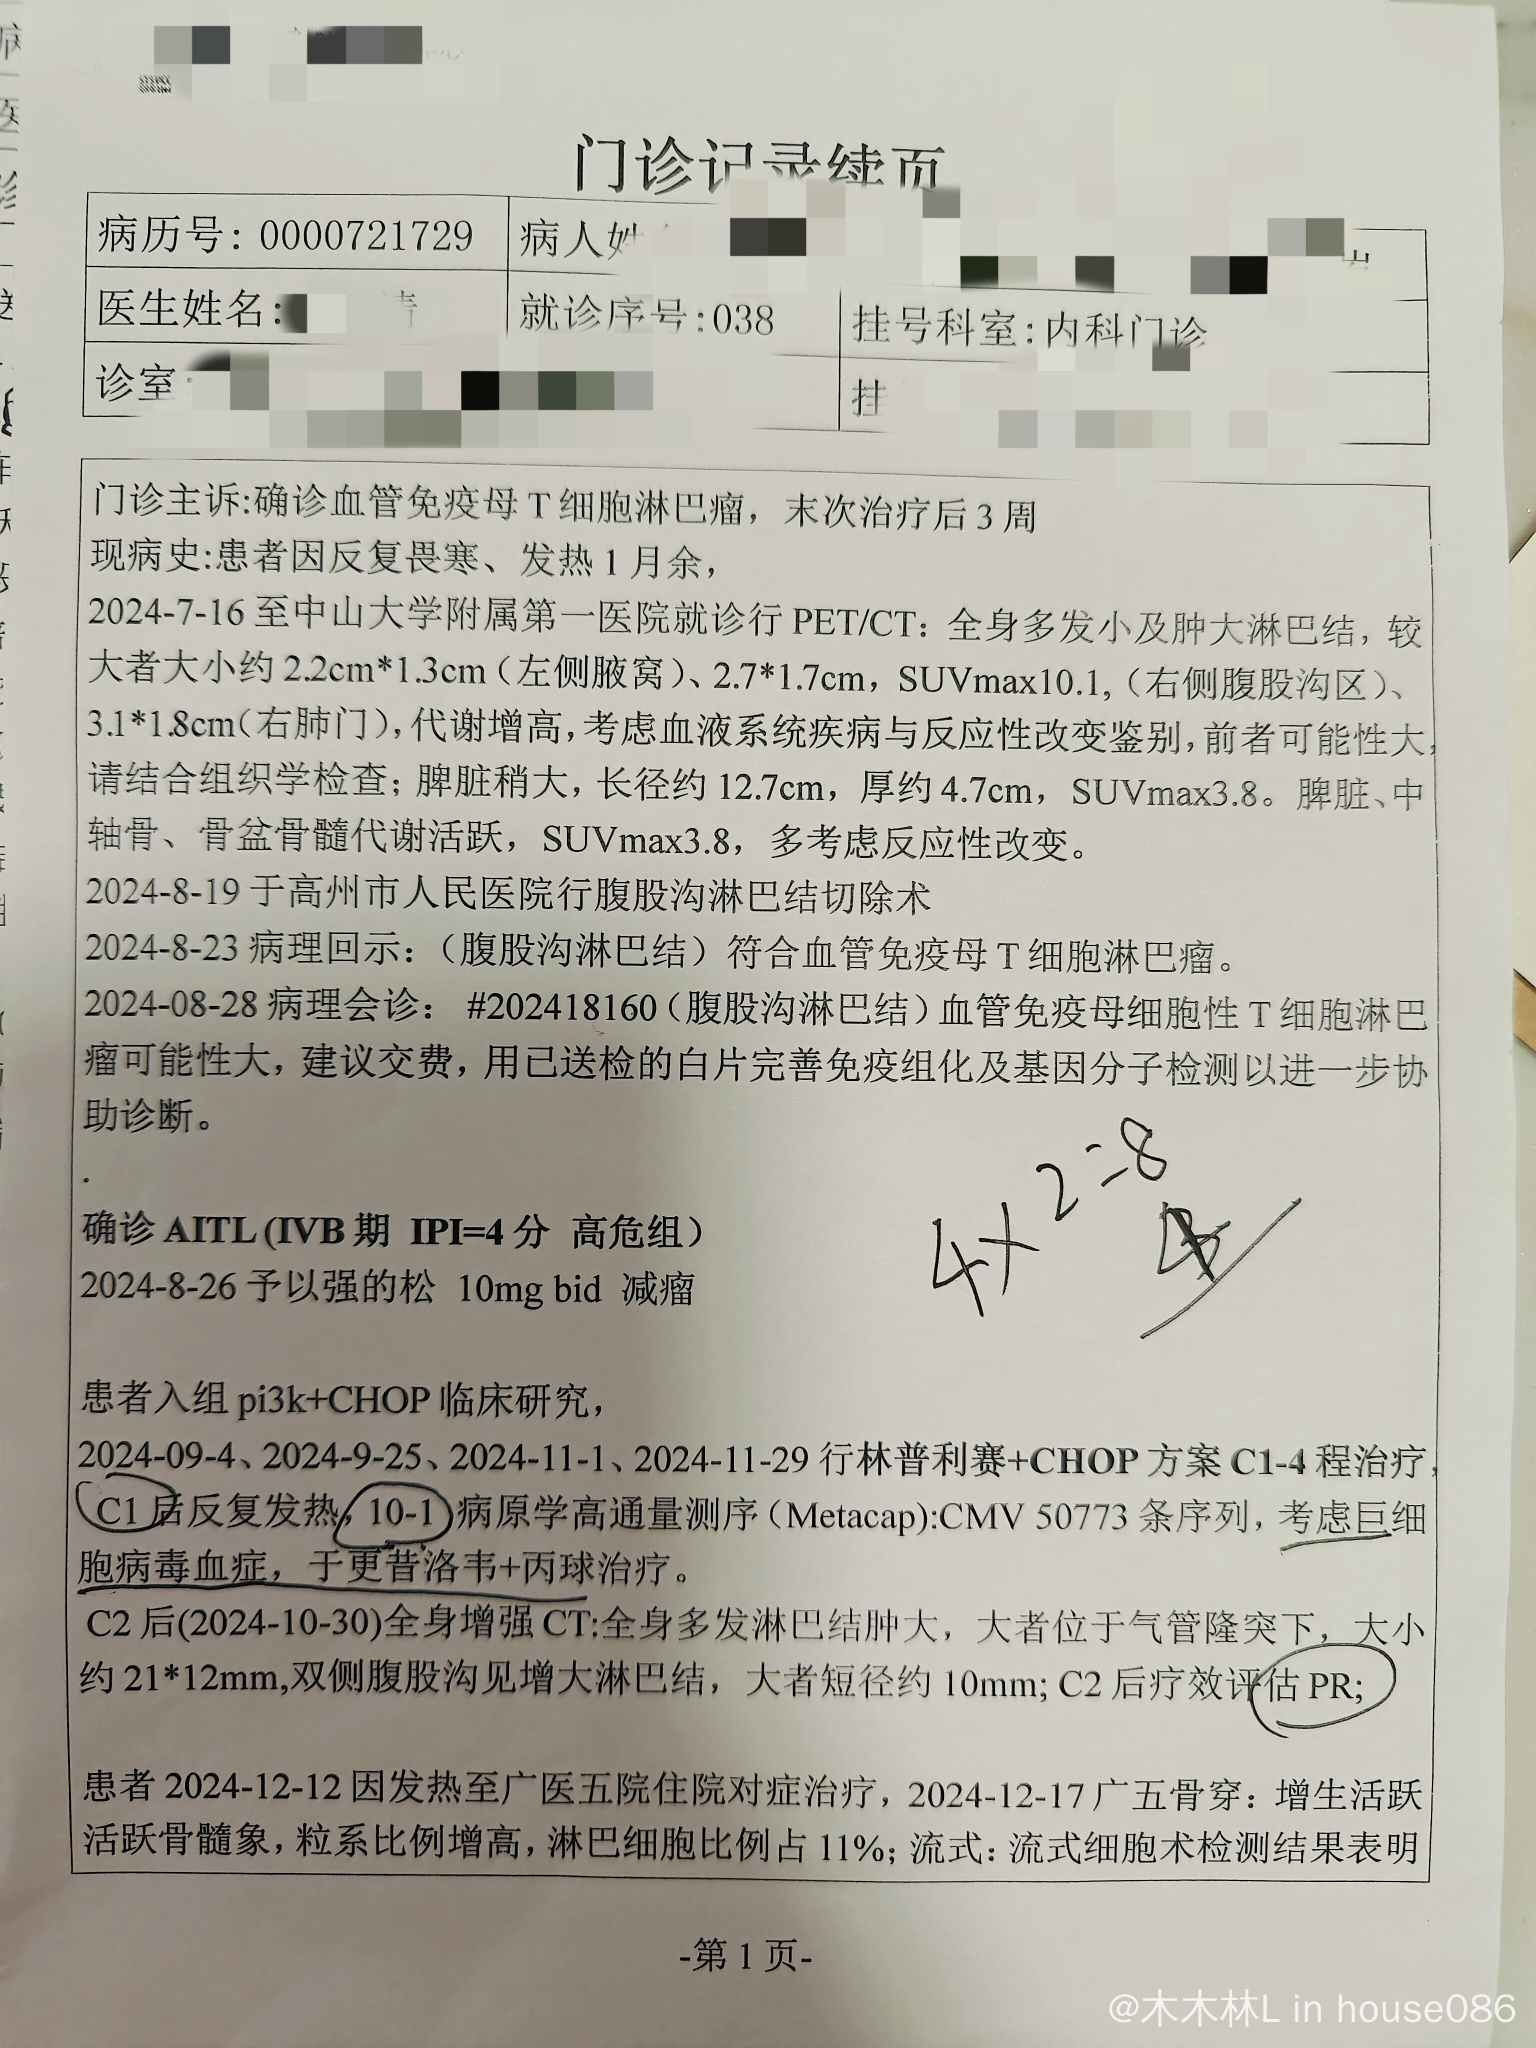 门诊记录续页
病历号: 0000721729
病人姓
医生姓名:
就诊序号:038
挂号科室:内科门诊
诊室
挂
门诊主诉:确诊血管免疫母 T 细胞淋巴瘤，末次治疗后 3 周
现病史:患者因反复畏寒、发热 1 月余，
2024-7-16 至中山大学附属第一医院就诊行 PET/CT：全身多发小及肿大淋巴结，较
大者大小约 2.2cm*1.3cm（左侧腋窝）、2.7*1.7cm，SUVmax10.1,（右侧腹股沟区）、
3.1*1.8cm（右肺门），代谢增高，考虑血液系统疾病与反应性改变鉴别，前者可能性大，
请结合组织学检查；脾脏稍大，长径约 12.7cm，厚约 4.7cm，SUVmax3.8。脾脏、中
轴骨、骨盆骨髓代谢活跃，SUVmax3.8，多考虑反应性改变。
2024-8-19 于高州市人民医院行腹股沟淋巴结切除术
2024-8-23 病理回示：（腹股沟淋巴结）符合血管免疫母 T 细胞淋巴瘤。
2024-08-28 病理会诊： #202418160（腹股沟淋巴结）血管免疫母细胞性 T 细胞淋巴
瘤可能性大，建议交费，用已送检的白片完善免疫组化及基因分子检测以进一步协
助诊断。
.
4×2=8
确诊 AITL (IVB 期 IPI=4 分 高危组）
2024-8-26 予以强的松 10mg bid 减瘤
患者入组 pi3k+CHOP 临床研究，
2024-09-4、2024-9-25、2024-11-1、2024-11-29 行林普利赛+CHOP 方案 C1-4 程治疗，
C1 后反复发热，10-1 病原学高通量测序（Metacap):CMV 50773 条序列，考虑巨细
胞病毒血症，于更昔洛韦+丙球治疗。
C2 后(2024-10-30)全身增强 CT:全身多发淋巴结肿大，大者位于气管隆突下，大小
约 21*12mm,双侧腹股沟见增大淋巴结，大者短径约 10mm; C2 后疗效评估 PR;
患者 2024-12-12 因发热至广医五院住院对症治疗，2024-12-17 广五骨穿：增生活跃
活跃骨髓象，粒系比例增高，淋巴细胞比例占 11%；流式：流式细胞术检测结果表明
-第 1 页-
@木木林L in house086